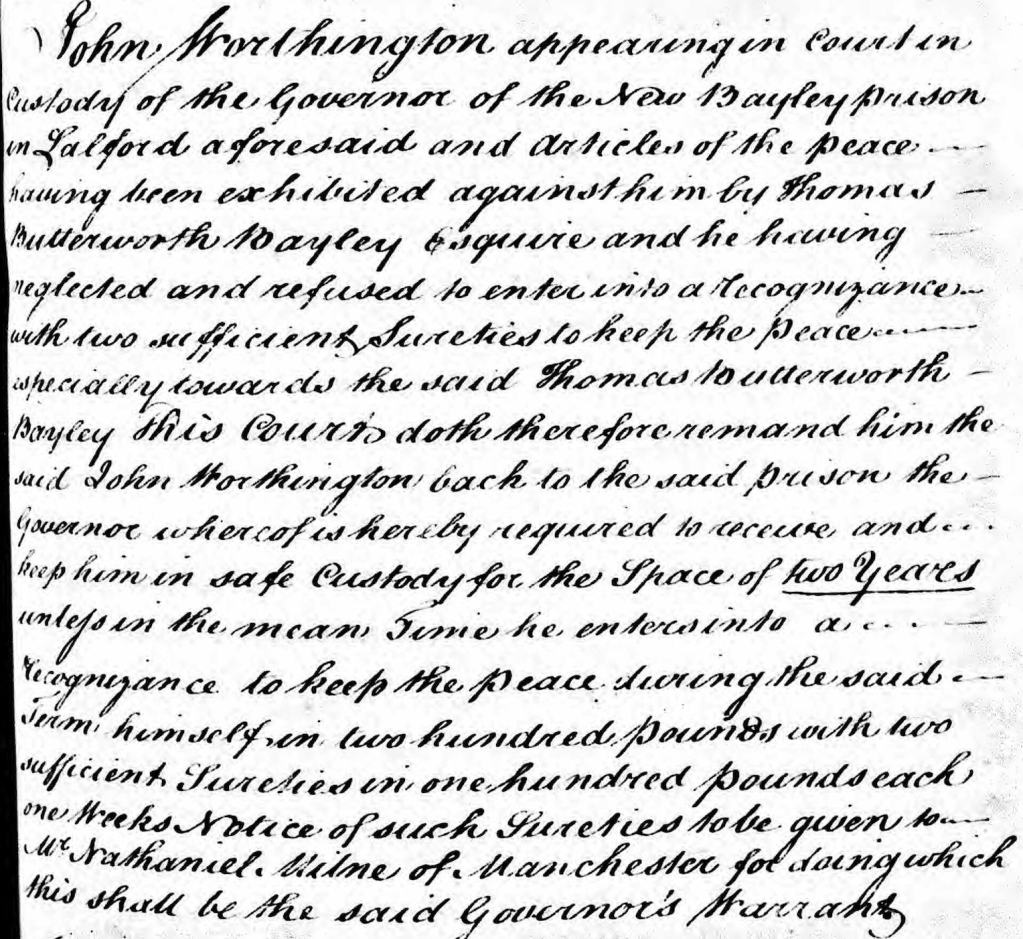 John Worthington appearing in Court in
Custody of the Governor of the New Bayley prison
in Salford aforesaid and Articles of the Peace
having been exhibited against him by Thomas
Butterworth Bayley Esquire and he having
neglected and refused to enter into a Recognizance
with two sufficient Sureties to keep the Peace
especially towards the said Thomas Butterworth
Bayley This Court doth therefore remand him the
said John Worthington back to the said prison the
Governor whereof is hereby required to receive and
keep him in safe Custody for the Space of two Years
unless in the mean Time he enters into a
Recognizance to keep the peace during the said
Term himself in two hundred pounds with two
sufficient Sureties in one hundred pounds each
one Weeks Notice of such Sureties to be given to
Mr Nathaniel Milne of Manchester for doing which
this shall be the said Governor's Warrant